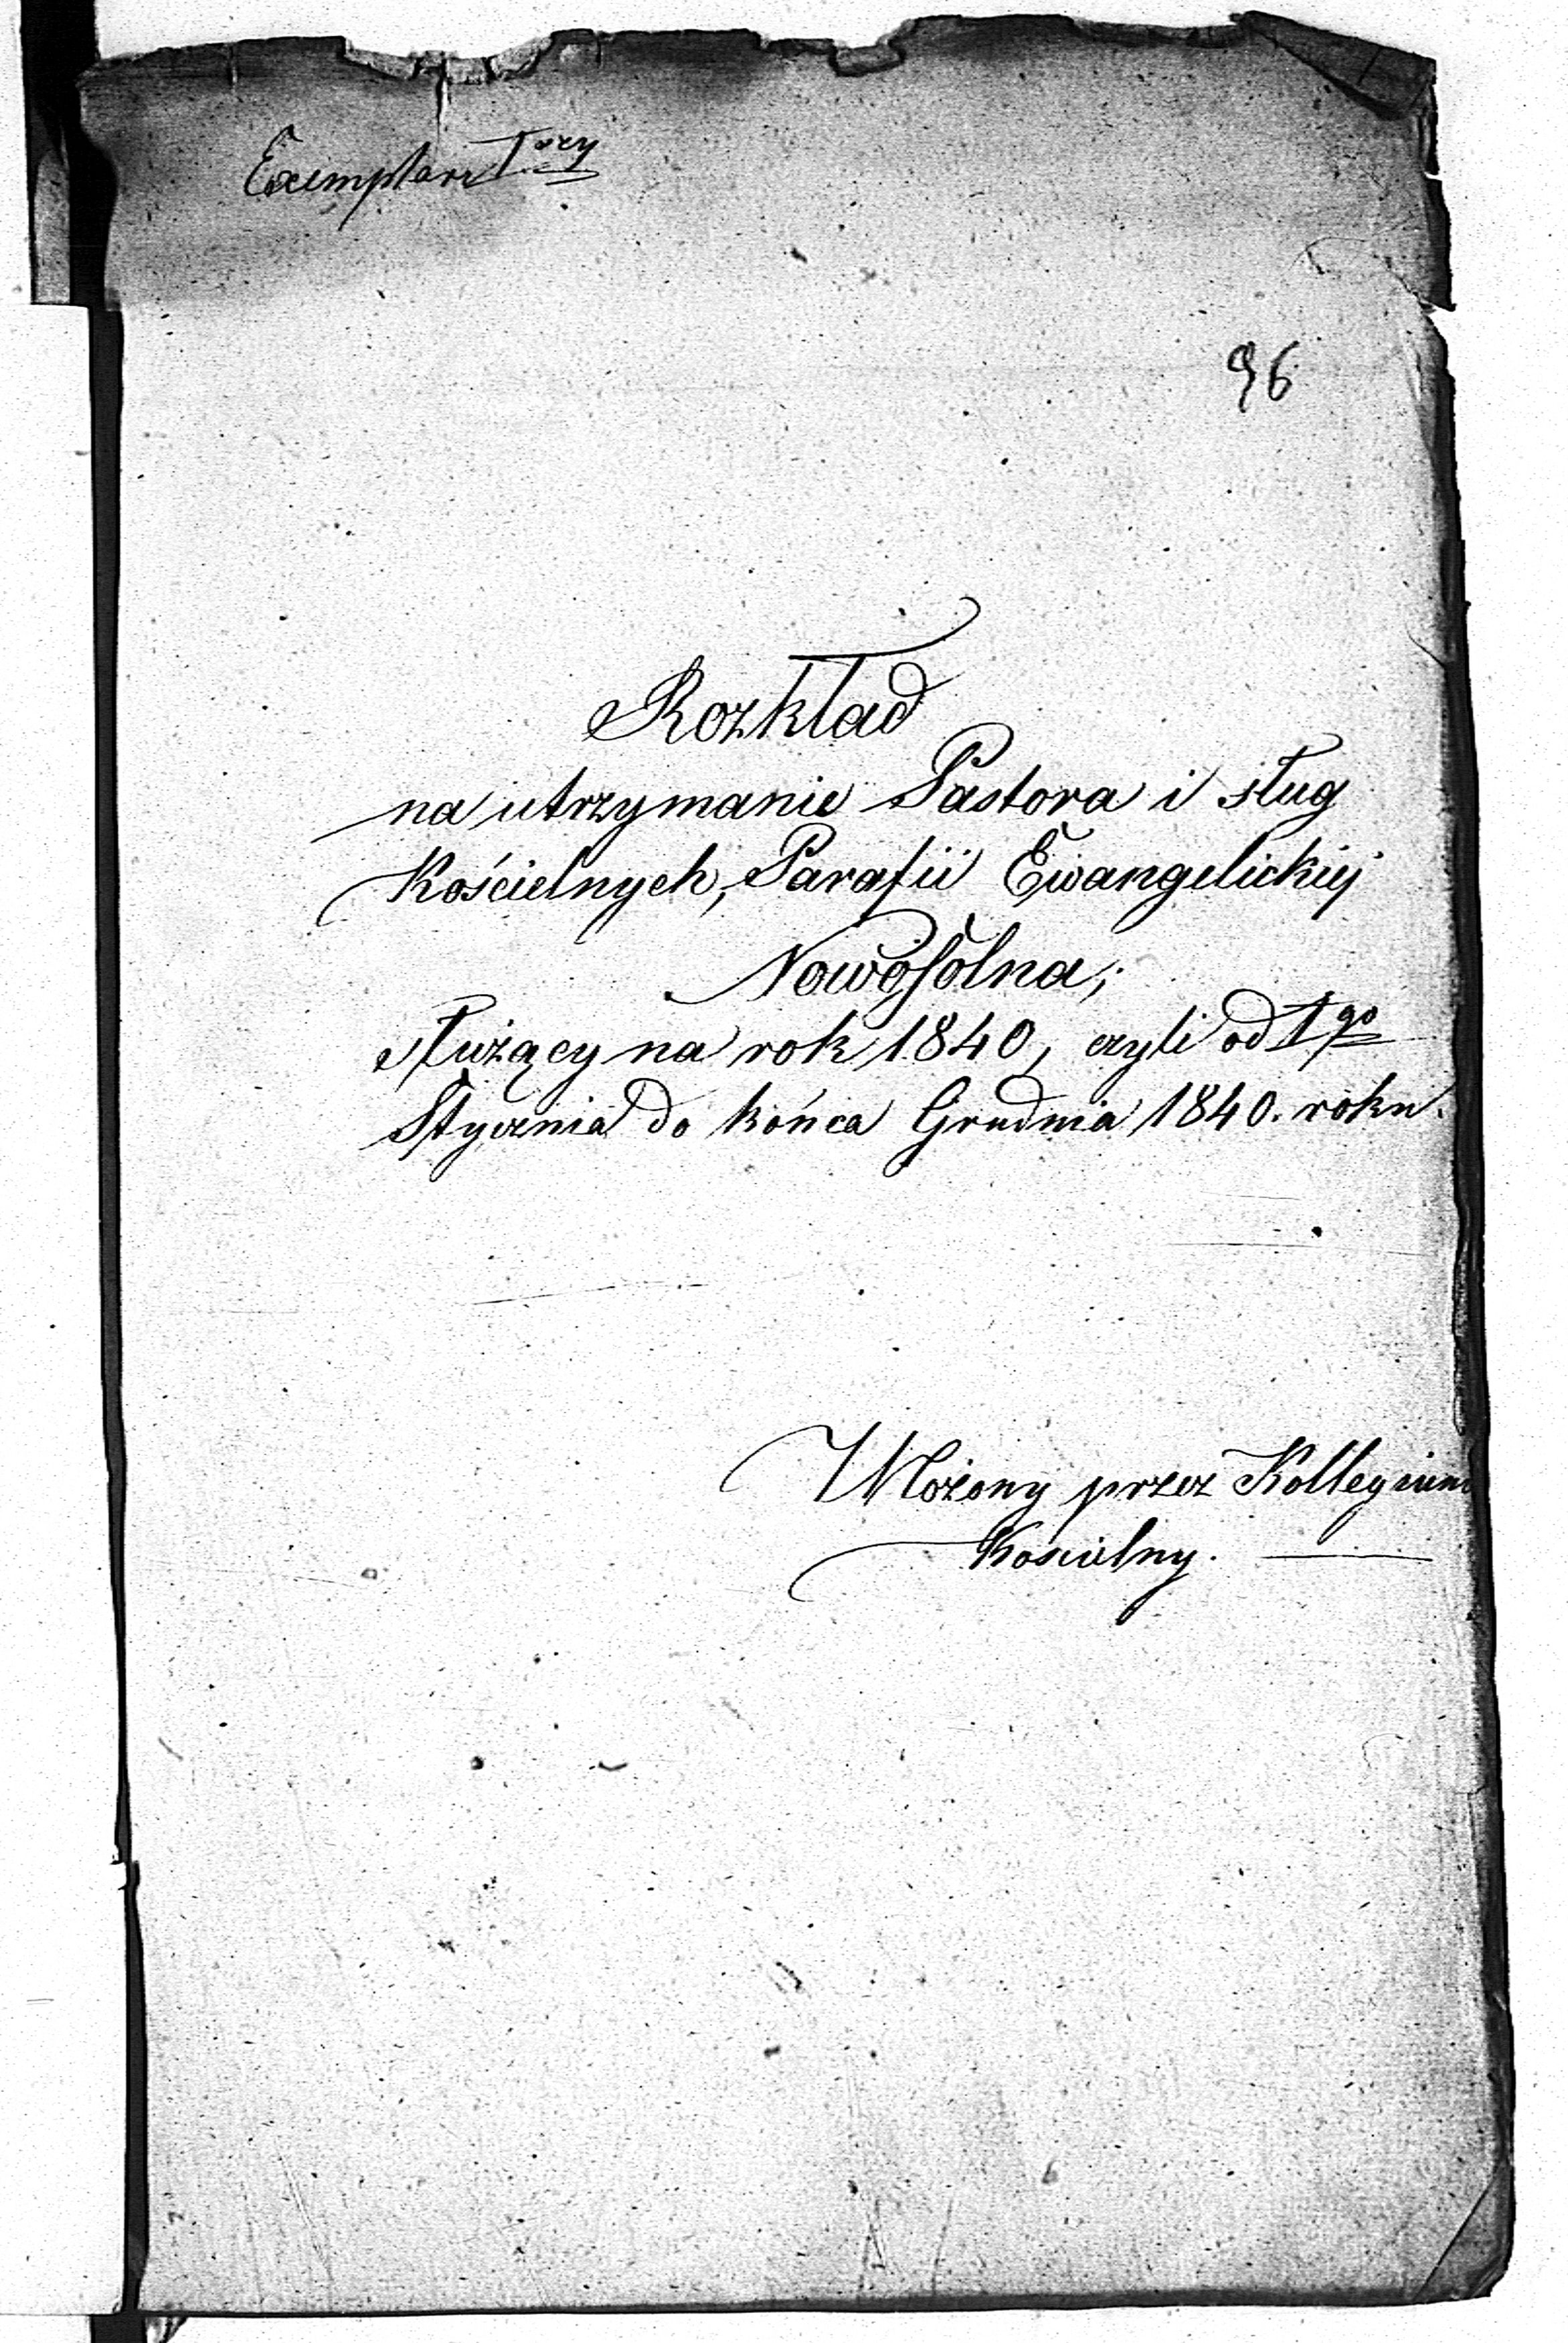 Exemplarz 1szy
96
Rozkład
na utrzymanie Pastora i sług
Kościelnych, Parafii Ewangelickiej
Nowosolna;
służący na rok 1840, czyli od 1go
Stycznia do końca Grudnia 1840. roku.
Ułożony przez Kollegium
Kościelny.